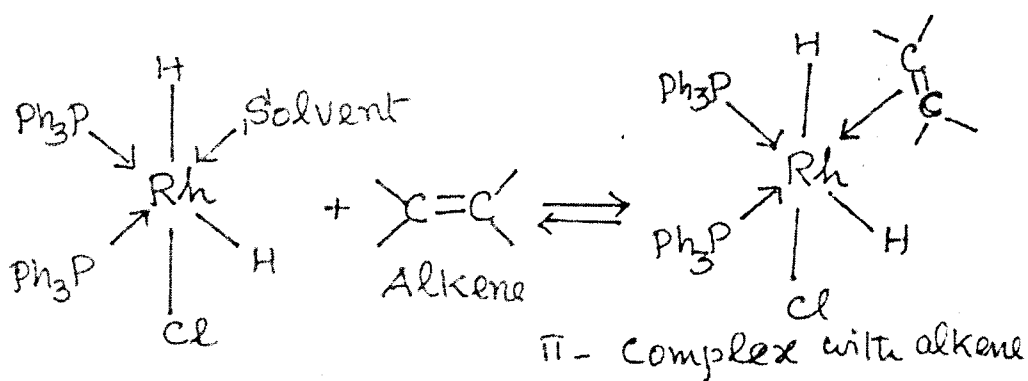 H
Ph₃P
Solvent
Rh
Ph₃P
H
Cl
+
C=C
Alkene
⇌
H
C
C
Ph₃P
Rh
Ph₃P
H
Cl
π- Complex with alkene